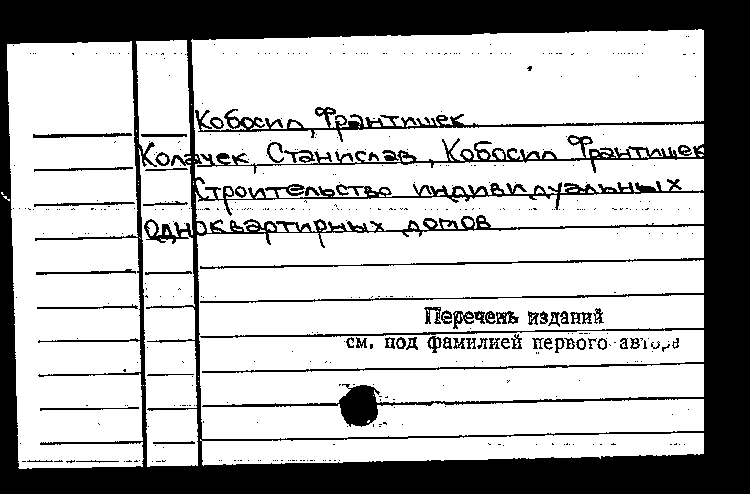 Кобосил, Франтишек
Колачек, Станислав, Кобосил Франтишек
Строительство индивидуальных
одноквартирных домов
Перечень изданий
см. под фамилией первого автора